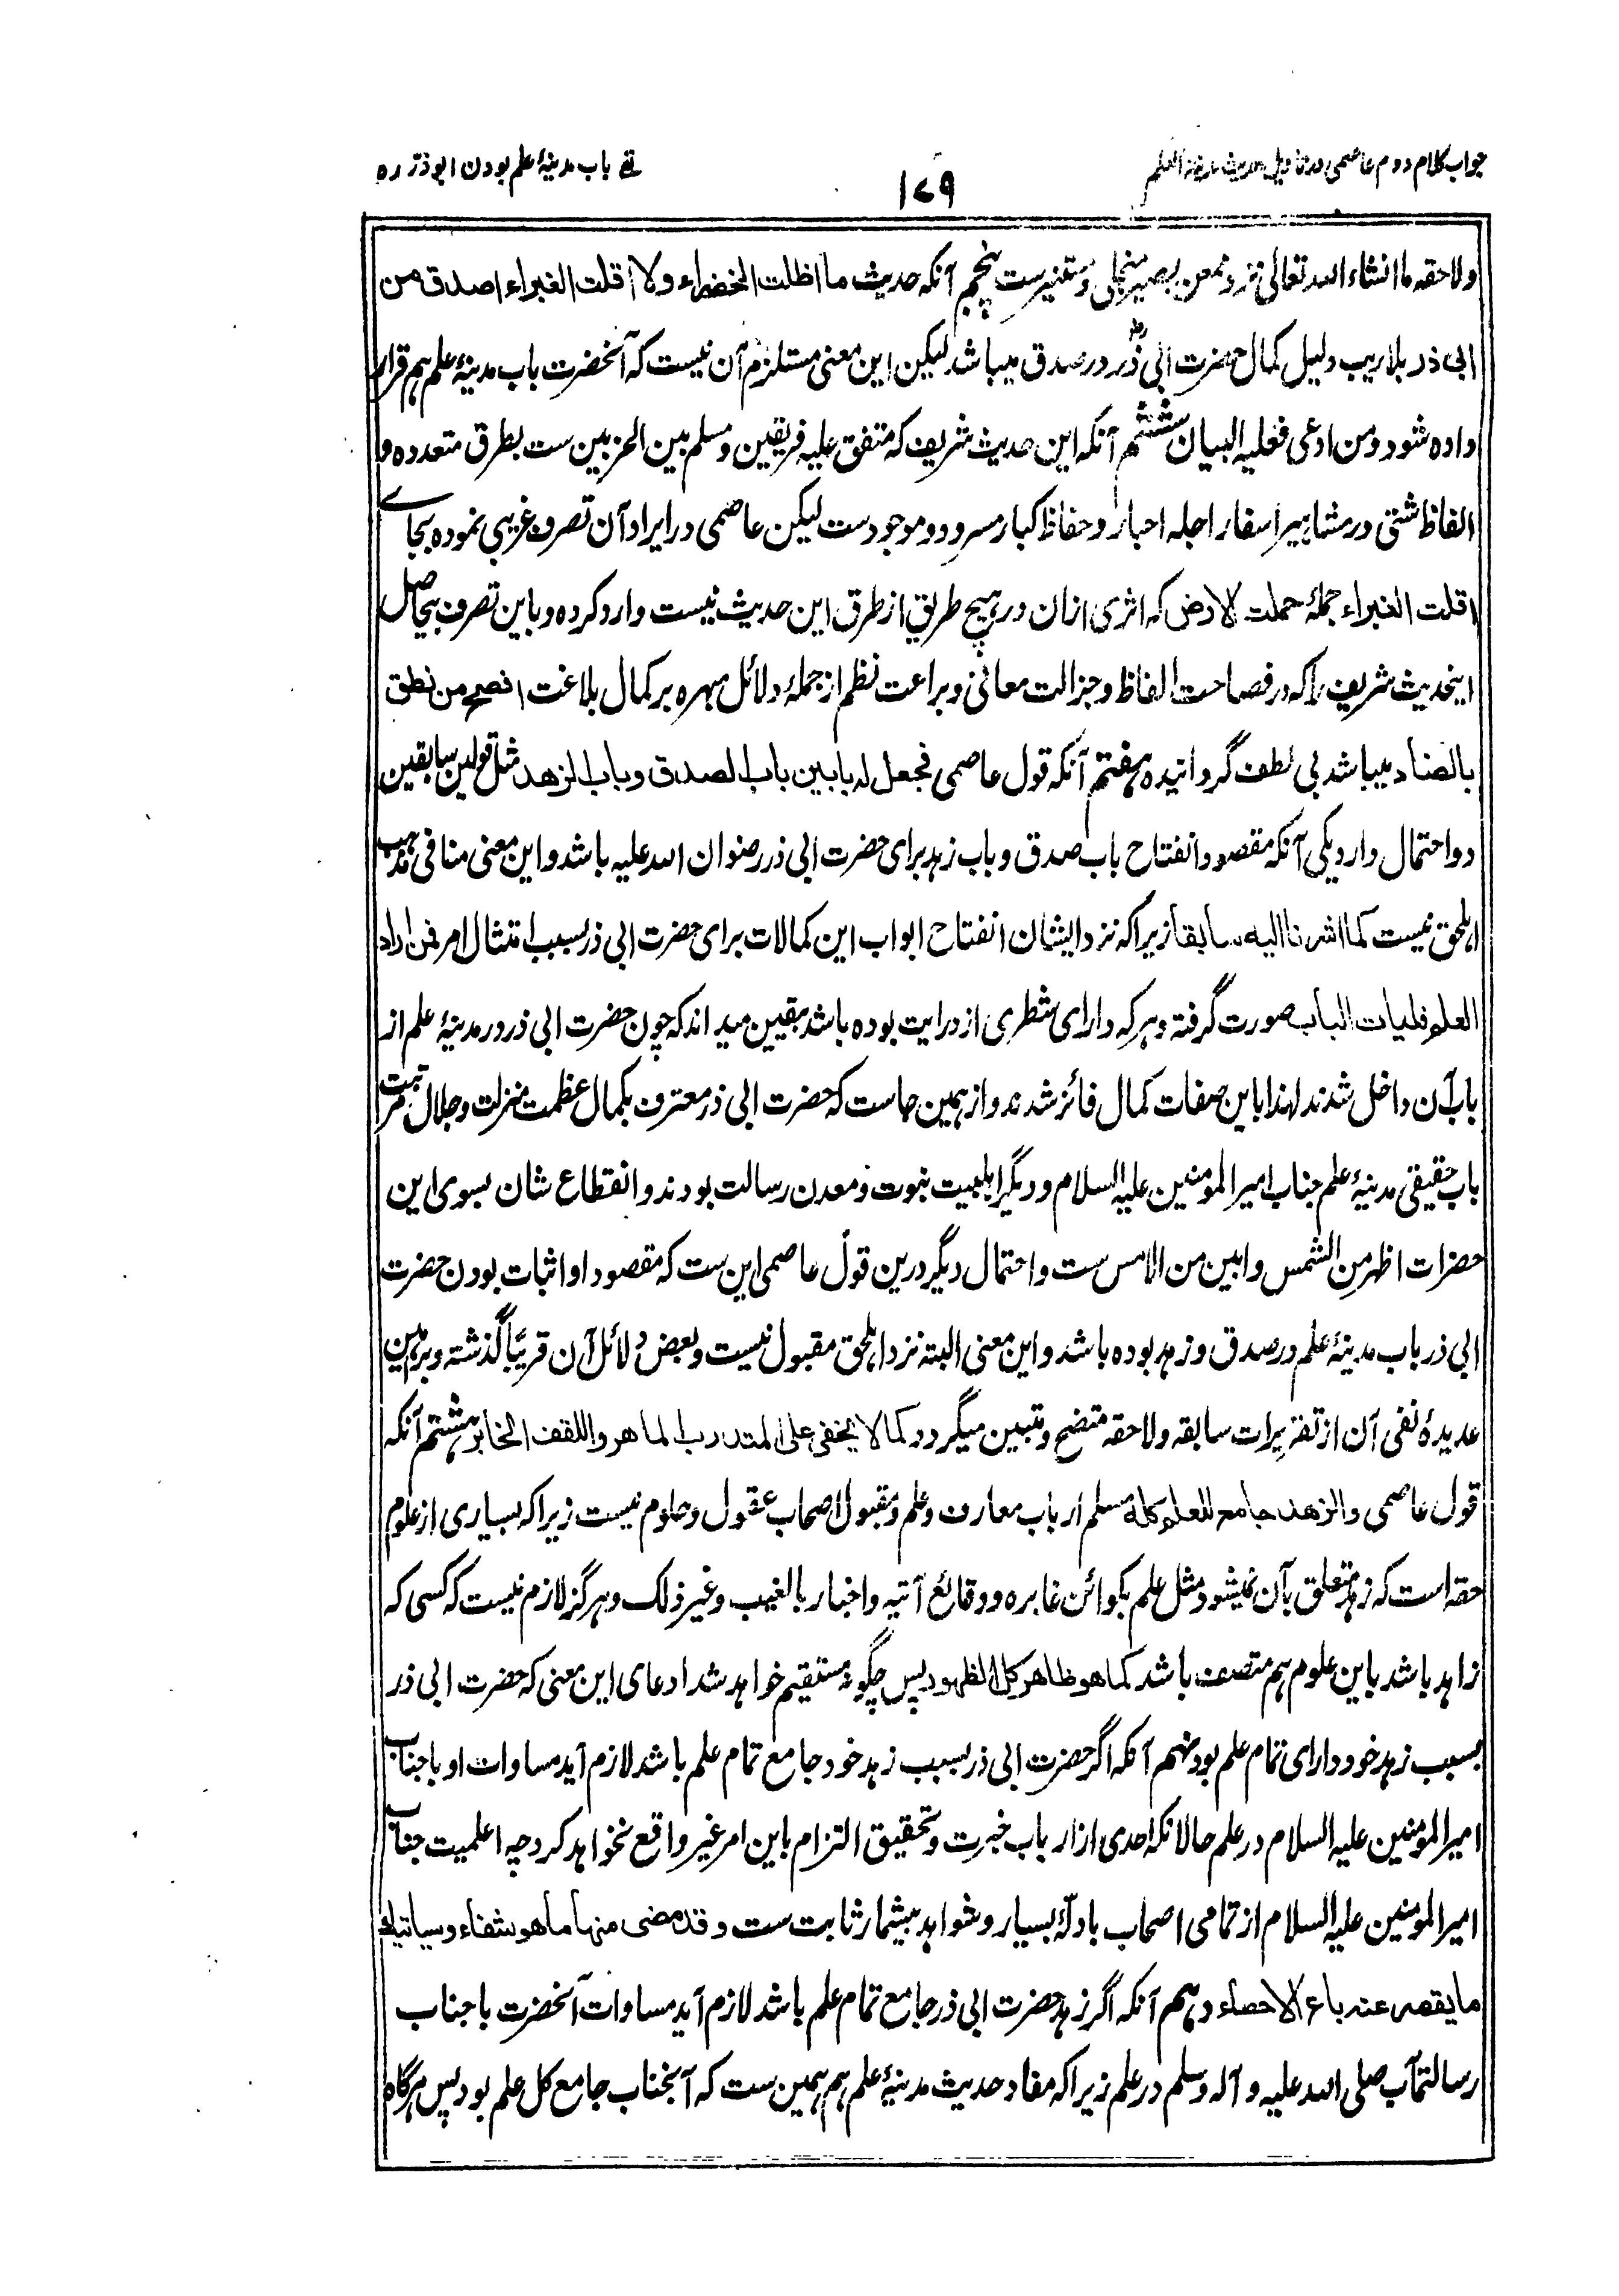 جواب کلام دوم عاصمی در تاویل حدیث مدینة العلم
۱۷۹
نفی باب مدینۂ علم بودن ابوذرّ ره
ولاحقه ما انشاء الله تعالی نزد ممعن بصیر منجلی و مستنیرست پنجم آنکه حدیث ما اظلت الخضراء ولا اقلت الغبراء اصدق من
ابی ذر بلا ریب دلیل کمال حضرت ابی ذر رض در صدق میباشد لیکن این معنی مستلزم آن نیست که آنحضرت باب مدینۂ علم هم قرار
داده شود ومن ادعی فعلیه البیان ششم آنکه این حدیث شریف که متفق علیه فریقین و مسلم بین الحزبین ست بطرق متعدده و
الفاظ شتی در مشاهیر اسفار اجله احبار و حفاظ کبار مسرود و موجودست لیکن عاصمی در ایراد آن تصرف غریبی نموده بجای
اقلت الغبراء جملۂ حملت الارض که اثری ازان در هیچ طریق از طرق این حدیث نیست وارد کرده و باین تصرف بیحاصل
اینحدیث شریف را که در فصاحت الفاظ و جزالت معانی و براعت نظم از جملۂ دلائل مبهره بر کمال بلاغت افصح من نطق
بالضاد میباشد بی لطف گردانیده هفتم آنکه قول عاصمی فجعل له بابین باب الصدق وباب الزهد مثل قولین سابقین
دو احتمال دارد یکی آنکه مقصود انفتاح باب صدق و باب زهد برای حضرت ابی ذر رضوان الله علیه باشد و این معنی منافی مذهب
اهلحق نیست کما اشرنا الیه سابقا زیراکه نزد ایشان انفتاح ابواب این کمالات برای حضرت ابی ذر بسبب امتثال امر فمن اراد
العلم فلیات الباب صورت گرفته و هر که دارای شطری از درایت بوده باشد بیقین میداند که چون حضرت ابی ذر در مدینۂ علم از
باب آن داخل شدند لهذا باین صفات کمال فائز شدند و از همین جاست که حضرت ابی ذر معترف بکمال عظمت منزلت و جلال مرتبت
باب حقیقی مدینۂ علم جناب امیر المومنین علیه السلام و دیگر اهلبیت نبوت و معدن رسالت بودند و انقطاع شان بسوی این
حضرات اظهر من الشمس و ابین من الامس ست و احتمال دیگر درین قول عاصمی این ست که مقصود او اثبات بودن حضرت
ابی ذر باب مدینۂ علم در صدق و زهد بوده باشد و این معنی البته نزد اهلحق مقبول نیست و بعض دلائل آن قریبًا گذشته و براهین
عدیدۂ نفی آن از تقریرات سابقه ولاحقه متضح و متبین میگردد کما لا یخفی علی المتدرب الماهر واللقف الخابر هشتم آنکه
قول عاصمی والزهد جامع للعلم کله مسلم ارباب معارف و علم و مقبول اصحاب عقول و حلوم نیست زیراکه بسیاری از علوم
حقه است که زهد متعلق بآن نمیشود مثل علم بکوائن غابره و وقائع آتیه و اخبار بالغیب و غیر ذلک و هرگز لازم نیست که کسی که
زاهد باشد باین علوم هم متصف باشد کما هو ظاهر کل الظهور پس چگونه مستقیم خواهد شد ادعای این معنی که حضرت ابی ذر
بسبب زهد خود دارای تمام علم بود نهم آنکه اگر حضرت ابی ذر بسبب زهد خود جامع تمام علم باشد لازم آید مساوات او با جناب
امیر المومنین علیه السلام در علم حالانکه احدی از ارباب خبرت و تحقیق التزام باین امر غیر واقع نخواهد کرد چه اعلمیت جناب
امیر المومنین علیه السلام از تمامی اصحاب بادلّۂ بسیار و شواهد بیشمار ثابت ست وقد مضی منها ما هو شفاء وسیاتیك
ما یقصر عنه باع الاحصاء دهم آنکه اگر زهد حضرت ابی ذر جامع تمام علم باشد لازم آید مساوات آنحضرت با جناب
رسالتمآب صلی الله علیه و آله وسلم در علم زیراکه مفاد حدیث مدینۂ علم هم همین ست که آنجناب جامع کل علم بود پس هرگاه